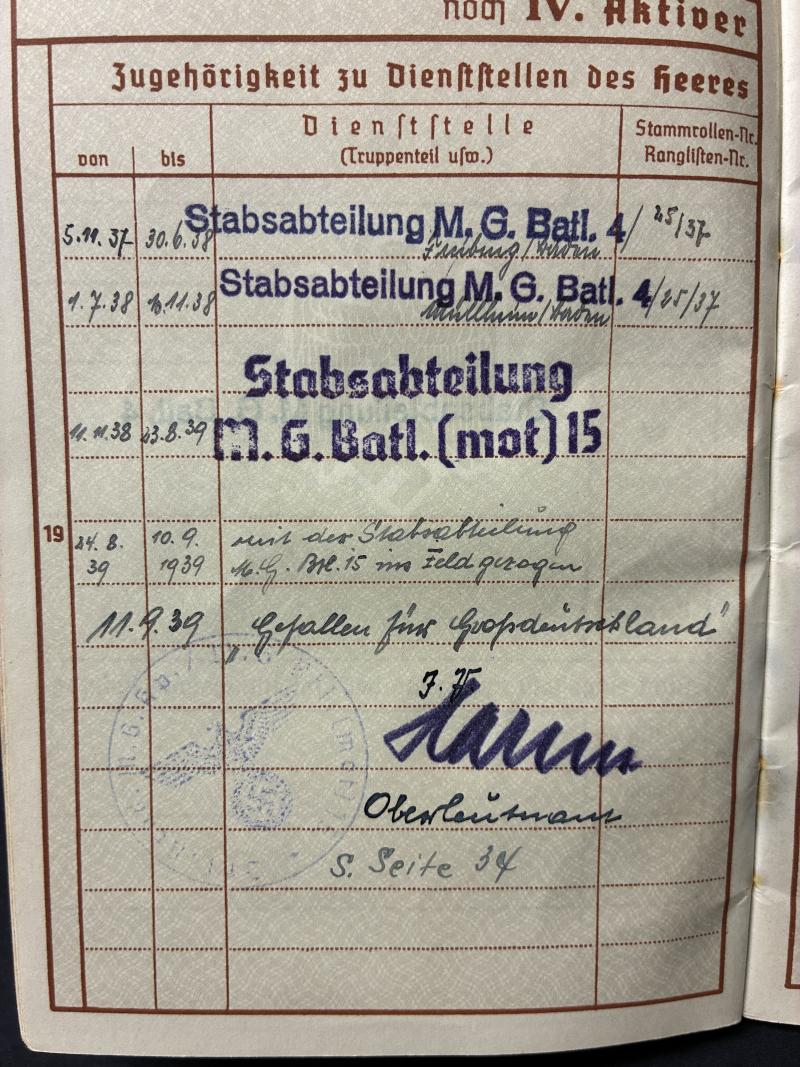 noch IV. Aktiver
Zugehörigkeit zu Dienststellen des Heeres
von bis Dienststelle (Truppenteil usw.) Stammrollen-Nr. Ranglisten-Nr.
5.11.37 30.6.38 Stabsabteilung M. G. Batl. 4 / 25/37
Freiburg/Baden
1.7.38 10.11.38 Stabsabteilung M. G. Batl. 4 /25/37
Müllheim/Baden
Stabsabteilung
11.11.38 23.8.39 M. G. Batl. (mot) 15
19 24.8. 10.9. mit der Stabsabteilung
39 1939 M.G. Btl. 15 ins Feld gezogen
11.9.39 „Gefallen für Großdeutschland"
Oberleutnant
S. Seite 34